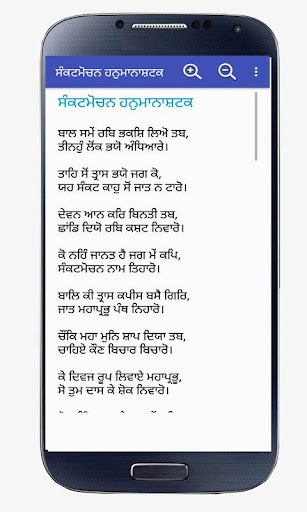 ਸੰਕਟਮੋਚਨ ਹਨੁਮਾਨਾਸ਼ਟਕ
ਸੰਕਟਮੋਚਨ ਹਨੁਮਾਨਾਸ਼ਟਕ
ਬਾਲ ਸਮੇਂ ਰਬਿ ਭਕਸ਼ਿ ਲਿਅੋ ਤਬ,
ਤੀਨਹੁੰ ਲੋਂਕ ਭਯੋ ਅੰਧਿਆਰੇ।
ਤਾਹਿ ਸੋਂ ਤ੍ਰਾਸ ਭਯੋ ਜਗ ਕੇ,
ਯਹ ਸੰਕਟ ਕਾਹੁ ਸੋਂ ਜਾਤ ਨ ਟਾਰੋ।
ਦੇਵਨ ਆਨ ਕਰਿ ਬਿਨਤੀ ਤਬ,
ਛਾਂਡਿ ਦਿਯੋ ਰਬਿ ਕਸ਼ਟ ਨਿਵਾਰੋ।
ਕੋ ਨਹਿੰ ਜਾਨਤ ਹੈ ਜਗ ਮੇਂ ਕਪਿ,
ਸੰਕਟਮੋਚਨ ਨਾਮ ਤਿਹਾਰੋ।
ਬਾਲਿ ਕੀ ਤ੍ਰਾਸ ਕਪੀਸ ਬਸੈ ਗਿਰਿ,
ਜਾਤ ਮਹਾਪ੍ਰਭੂ ਪੰਥ ਨਿਹਾਰੋ।
ਚੌਂਕਿ ਮਹਾ ਮੁਨਿ ਸ਼ਾਪ ਦਿਯਾ ਤਬ,
ਚਾਹਿਏ ਕੌਣ ਬਿਚਾਰ ਬਿਚਾਰੋ।
ਕੇ ਦਿਵਜ ਰੂਪ ਲਿਵਾਏ ਮਹਾਪ੍ਰਭੂ,
ਸੋ ਤੁਮ ਦਾਸ ਕੇ ਸ਼ੋਕ ਨਿਵਾਰੋ।